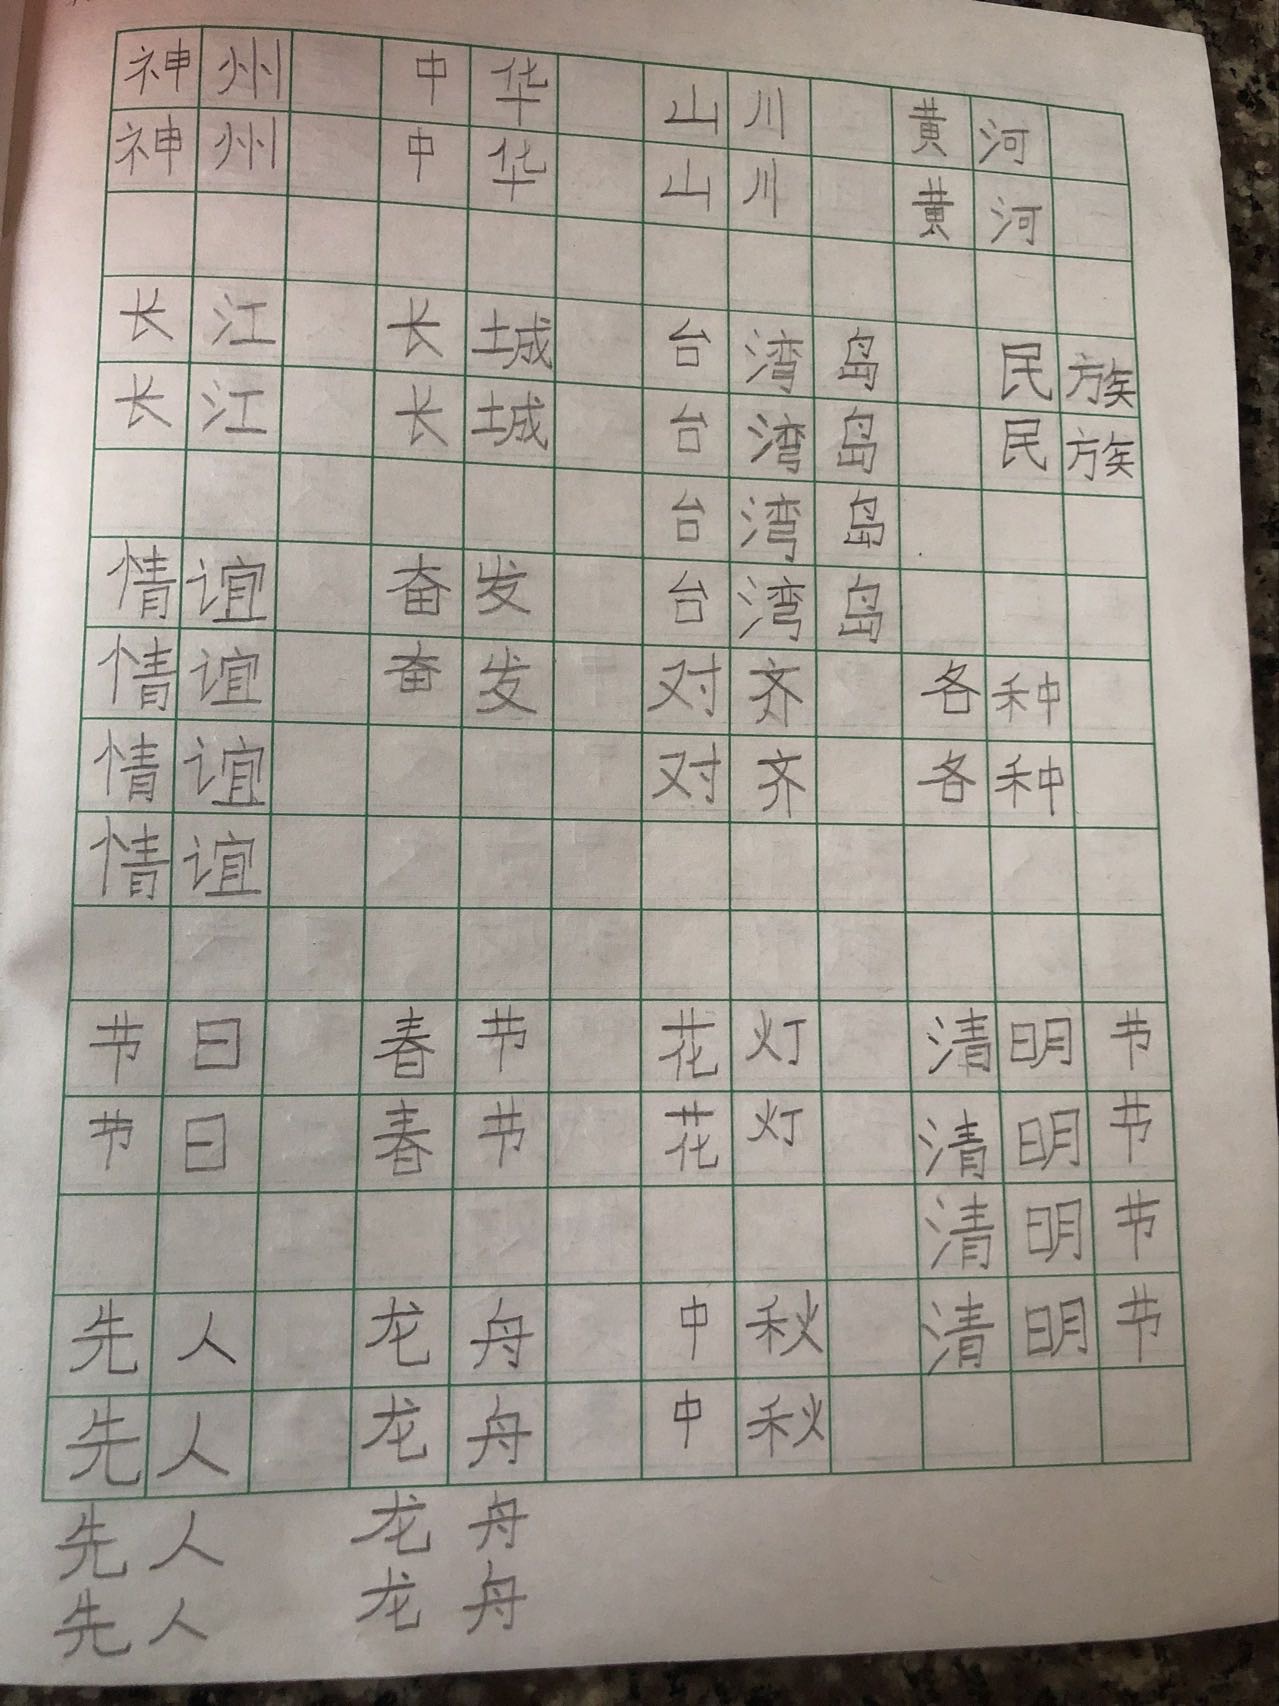 神州 中华 山川 黄河
神州 中华 山川 黄河
长江 长城 台湾岛 民族
长江 长城 台湾岛 民族
台湾岛
情谊 奋发 台湾岛
情谊 奋发 对齐 各种
情谊 对齐 各种
情谊
节日 春节 花灯 清明节
节日 春节 花灯 清明节
清明节
先人 龙舟 中秋 清明节
先人 龙舟 中秋
先人 龙舟
先人 龙舟